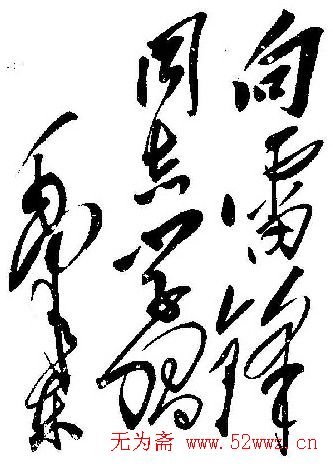 向雷锋
同志学习
毛泽东
无为斋 www.52wwz.cn